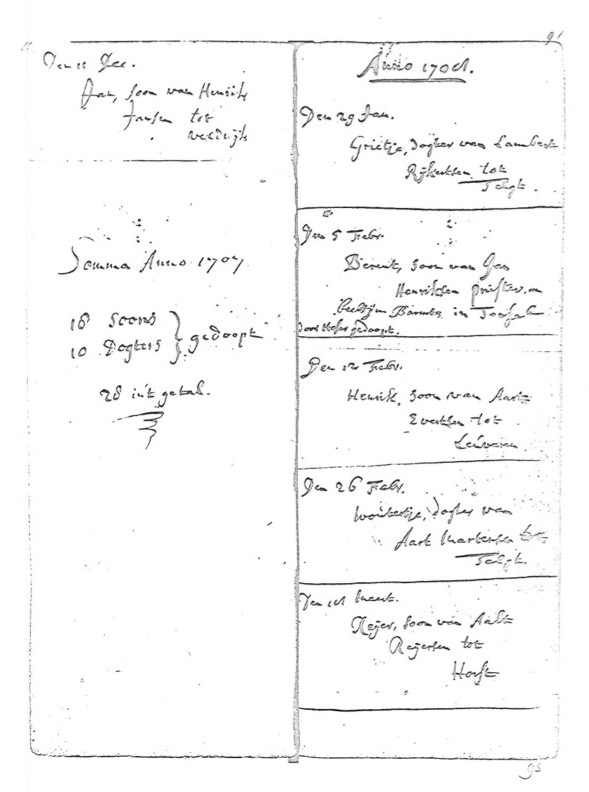 Den 11 Dec.
Jan, soon van Henrik
Jansen tot
veldwijk
Somma Anno 1707
18 soons
10 Dogters } gedoopt
28 in't getal.
91
Anno 1708.
Den 29 Jan.
Grietje, dogter van Lambert
Rijkertsen tot
Telgt.
Den 5 Febr.
Berent, soon van Jan
Henriksen en
in
gedoopt.
Den 12 Febr.
Henrik, soon van Aart
Evertsen tot
Leuvenen.
Den 26 Febr.
Woutertje, dogter van
Aart Martensen tot
Telgt.
Den 18 Meert.
Reijer, soon van Aalt
Reijersen tot
Horst